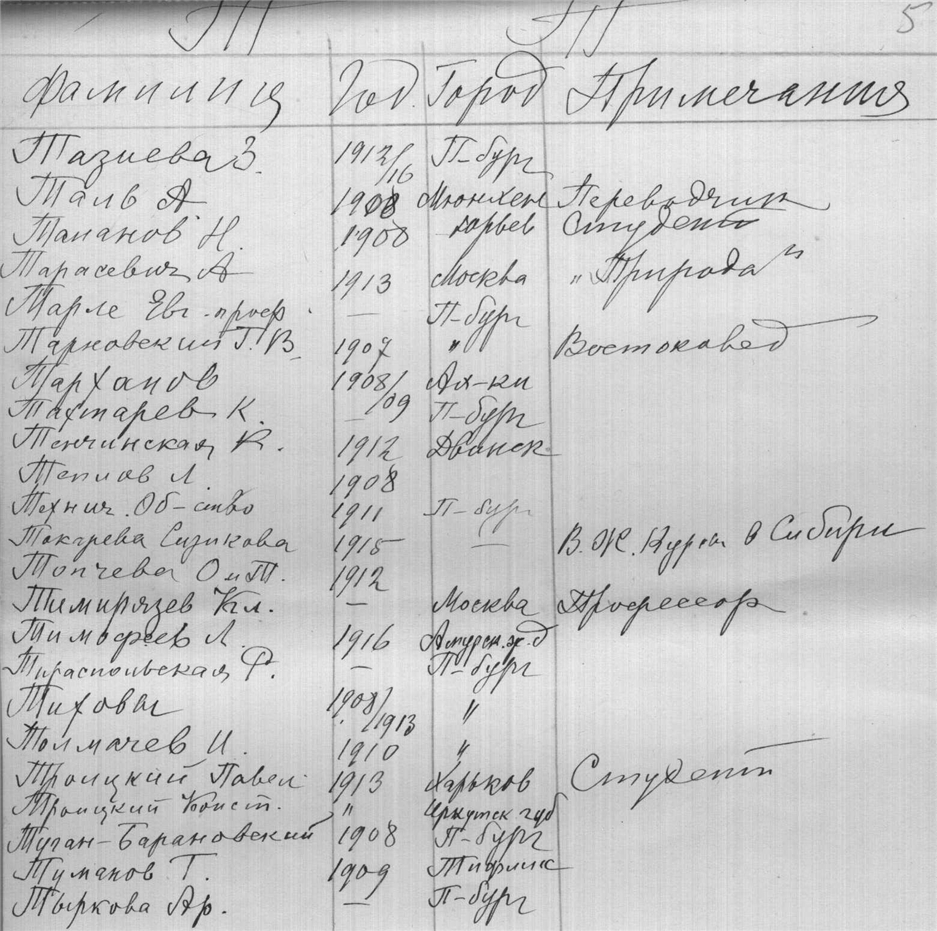 Т Т 5
Фамилия Год Город Примечания
Тазиева З. 1912/16 П-бург
Таль А 1908 Мюнхен Переводчик
Тапанов Н. 1908 Юрьев Студент
Тарасевич А 1913 Москва „Природа"
Тарле Евг. проф. — П-бург
Тарновский Г. В. 1907 " Востоковед
Тарханов 1908/09 Ал-ки
Тахтарев К. — П-бург
Тенчинская К. 1912 Двинск
Теплов Л. 1908
Технич. Об-ство 1911 П-бург
Токарева Сизикова 1915 — В. Ж. Курсы в Сибири
Топчева О и Т. 1912
Тимирязев Кл. — Москва Профессор
Тимофеев Л. 1916 Амурск. ж. д
Тираспольская Ф. — П-бург
Тиховы 1908/1913 "
Толмачев И. 1910 "
Троицкий Павел 1913 Харьков Студент
Троицкий Конст. " Иркутск губ
Туган-Барановский 1908 П-бург
Туманов Г. 1909 Тифлис
Тыркова Ар. — П-бург